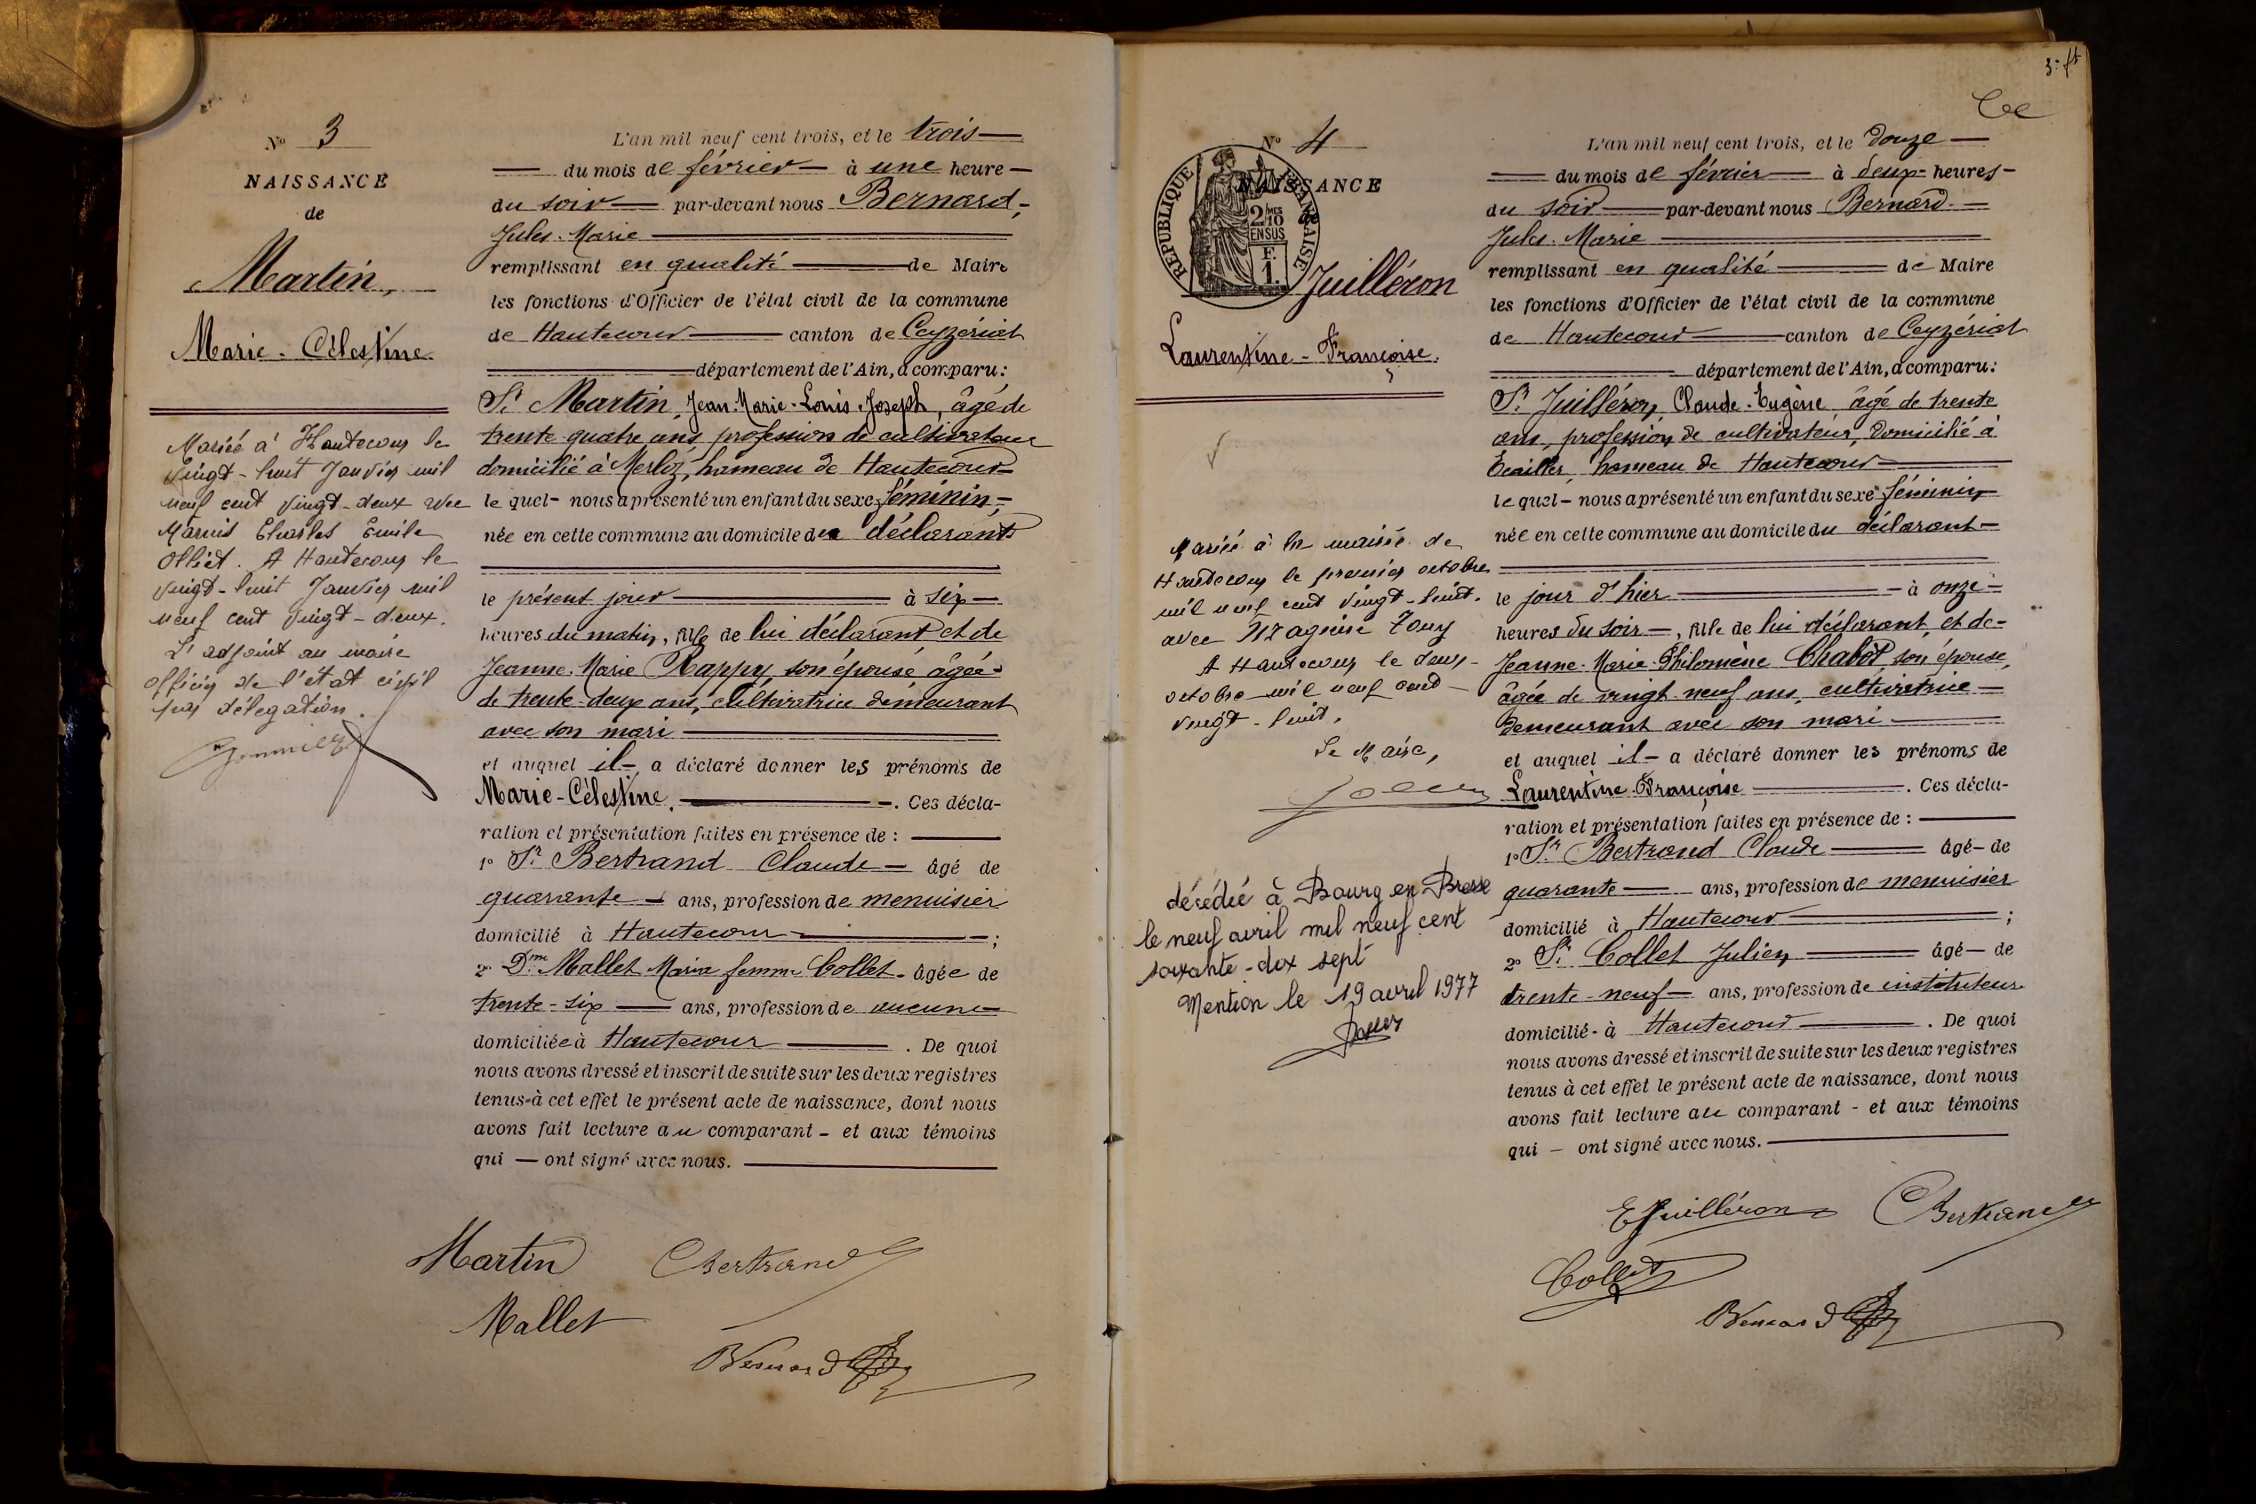 N° 3
NAISSANCE
de
Martin,
Marie-Célestine
Mariée à Hautecour le
vingt-huit Janvier mil
neuf cent vingt-deux avec
Marius Charles Emile
Olliet. A Hautecour le
vingt-huit Janvier mil
neuf cent vingt-deux.
L'adjoint au maire
officier de l'état civil
par délégation.
L'an mil neuf cent trois, et le trois
du mois de février à une heure
du soir par-devant nous Bernard,
Jules-Marie
remplissant en qualité de Maire
les fonctions d'Officier de l'état civil de la commune
de Hautecour canton de Ceyzériat
département de l'Ain, a comparu:
Sr Martin, Jean-Marie-Louis-Joseph, âgé de
trente-quatre ans, profession de cultivateur
domicilié à Merloz, hameau de Hautecour
le quel - nous a présenté un enfant du sexe féminin,
née en cette commune au domicile du déclarant
le présent jour à six
heures du matin, fille de lui déclarant et de
Jeanne-Marie Rappy, son épouse, âgée
de trente-deux ans, cultivatrice demeurant
avec son mari
et auquel il a déclaré donner les prénoms de
Marie-Célestine. Ces décla-
ration et présentation faites en présence de :
1° Sr Bertrand Claude âgé de
quarante ans, profession de menuisier
domicilié à Hautecour ;
2° Dme Mallet Maria femme Collet âgée de
trente-six ans, profession de aucune
domiciliée à Hautecour . De quoi
nous avons dressé et inscrit de suite sur les deux registres
tenus à cet effet le présent acte de naissance, dont nous
avons fait lecture au comparant - et aux témoins
qui — ont signé avec nous.
Martin Bertrand
Mallet
Bernard
3e ft
N° 4
NAISSANCE
de
REPUBLIQUE FRANÇAISE
2/10 MES
EN SUS
F.
1.
Juilléron
Laurentine-Françoise.
Mariée à la mairie de
Hautecour le premier octobre
mil neuf cent vingt-huit.
avec
A Hautecour le deux
octobre mil neuf cent
vingt-huit.
Le Maire,
décédée à Bourg en Bresse
le neuf avril mil neuf cent
soixante-dix sept
Mention le 19 avril 1977
L'an mil neuf cent trois, et le douze
du mois de février à deux heures
du soir par-devant nous Bernard
Jules-Marie
remplissant en qualité de Maire
les fonctions d'Officier de l'état civil de la commune
de Hautecour canton de Ceyzériat
département de l'Ain, a comparu:
Sr Juilléron, Claude-Eugène, âgé de trente
ans, profession de cultivateur, domicilié à
hameau de Hautecour
le quel - nous a présenté un enfant du sexe féminin
née en cette commune au domicile du déclarant
le jour d'hier à onze
heures du soir, fille de lui déclarant, et de
Jeanne-Marie-Philomène Chabot, son épouse,
âgée de vingt-neuf ans, cultivatrice
demeurant avec son mari
et auquel il a déclaré donner les prénoms de
Laurentine-Françoise . Ces décla-
ration et présentation faites en présence de :
1° Sr Bertrand Claude âgé de
quarante ans, profession de menuisier
domicilié à Hautecour ;
2° Sr Collet Julien âgé de
trente-neuf ans, profession de instituteur
domicilié à Hautecour . De quoi
nous avons dressé et inscrit de suite sur les deux registres
tenus à cet effet le présent acte de naissance, dont nous
avons fait lecture au comparant - et aux témoins
qui - ont signé avec nous.
E Juilléron Bertrand
Collet
Bernard